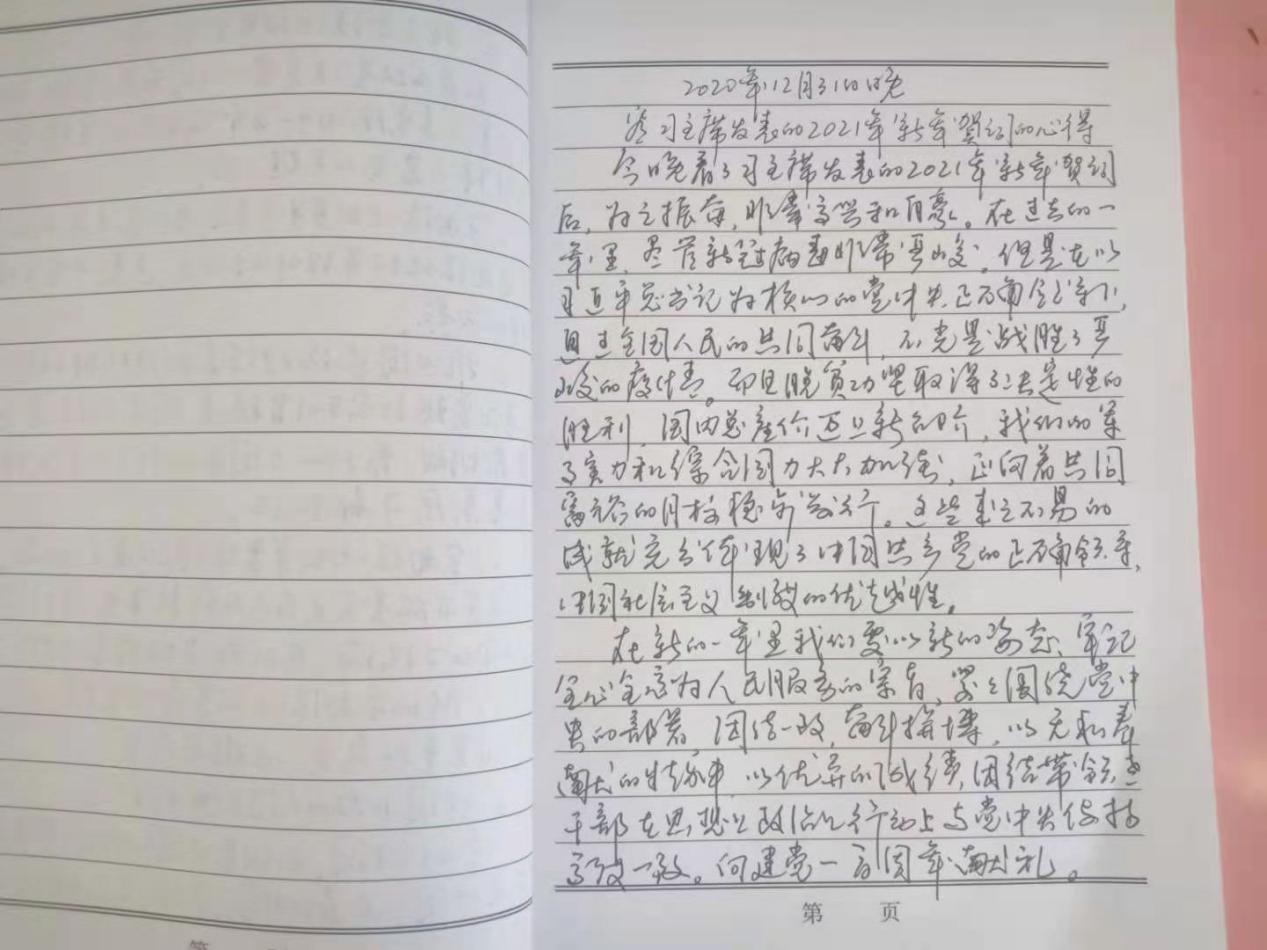 2020年12月31日晚
习主席发表的2021年新年贺词的心得
今晚看了习主席发表的2021年新年贺词
后，为之振奋，非常高兴和自豪。在过去的一
年里，尽管新冠病毒非常严峻，但是在以
习近平总书记为核心的党中央正确领导下，
通过全国人民的共同奋斗，不光是战胜了严
峻的疫情。而且脱贫功坚取得了决定性的
胜利，国内总产价迈上新台阶，我们的军
事实力和综合国力大大加强，正向着共同
富裕的目标稳步前行。这些来之不易的
成就充分体现了中国共产党的正确领导，
中国社会主义制度的优越性。
在新的一年里我们要以新的姿态、牢记
全心全意为人民服务的宗旨，紧紧围绕党中
央的部署，团结一致，奋斗拼搏，以无私奉
献的精神，以优异的成绩，团结带领
干部在思想上政治上行动上与党中央保持
高度一致。向建党一百周年献礼。
第 页